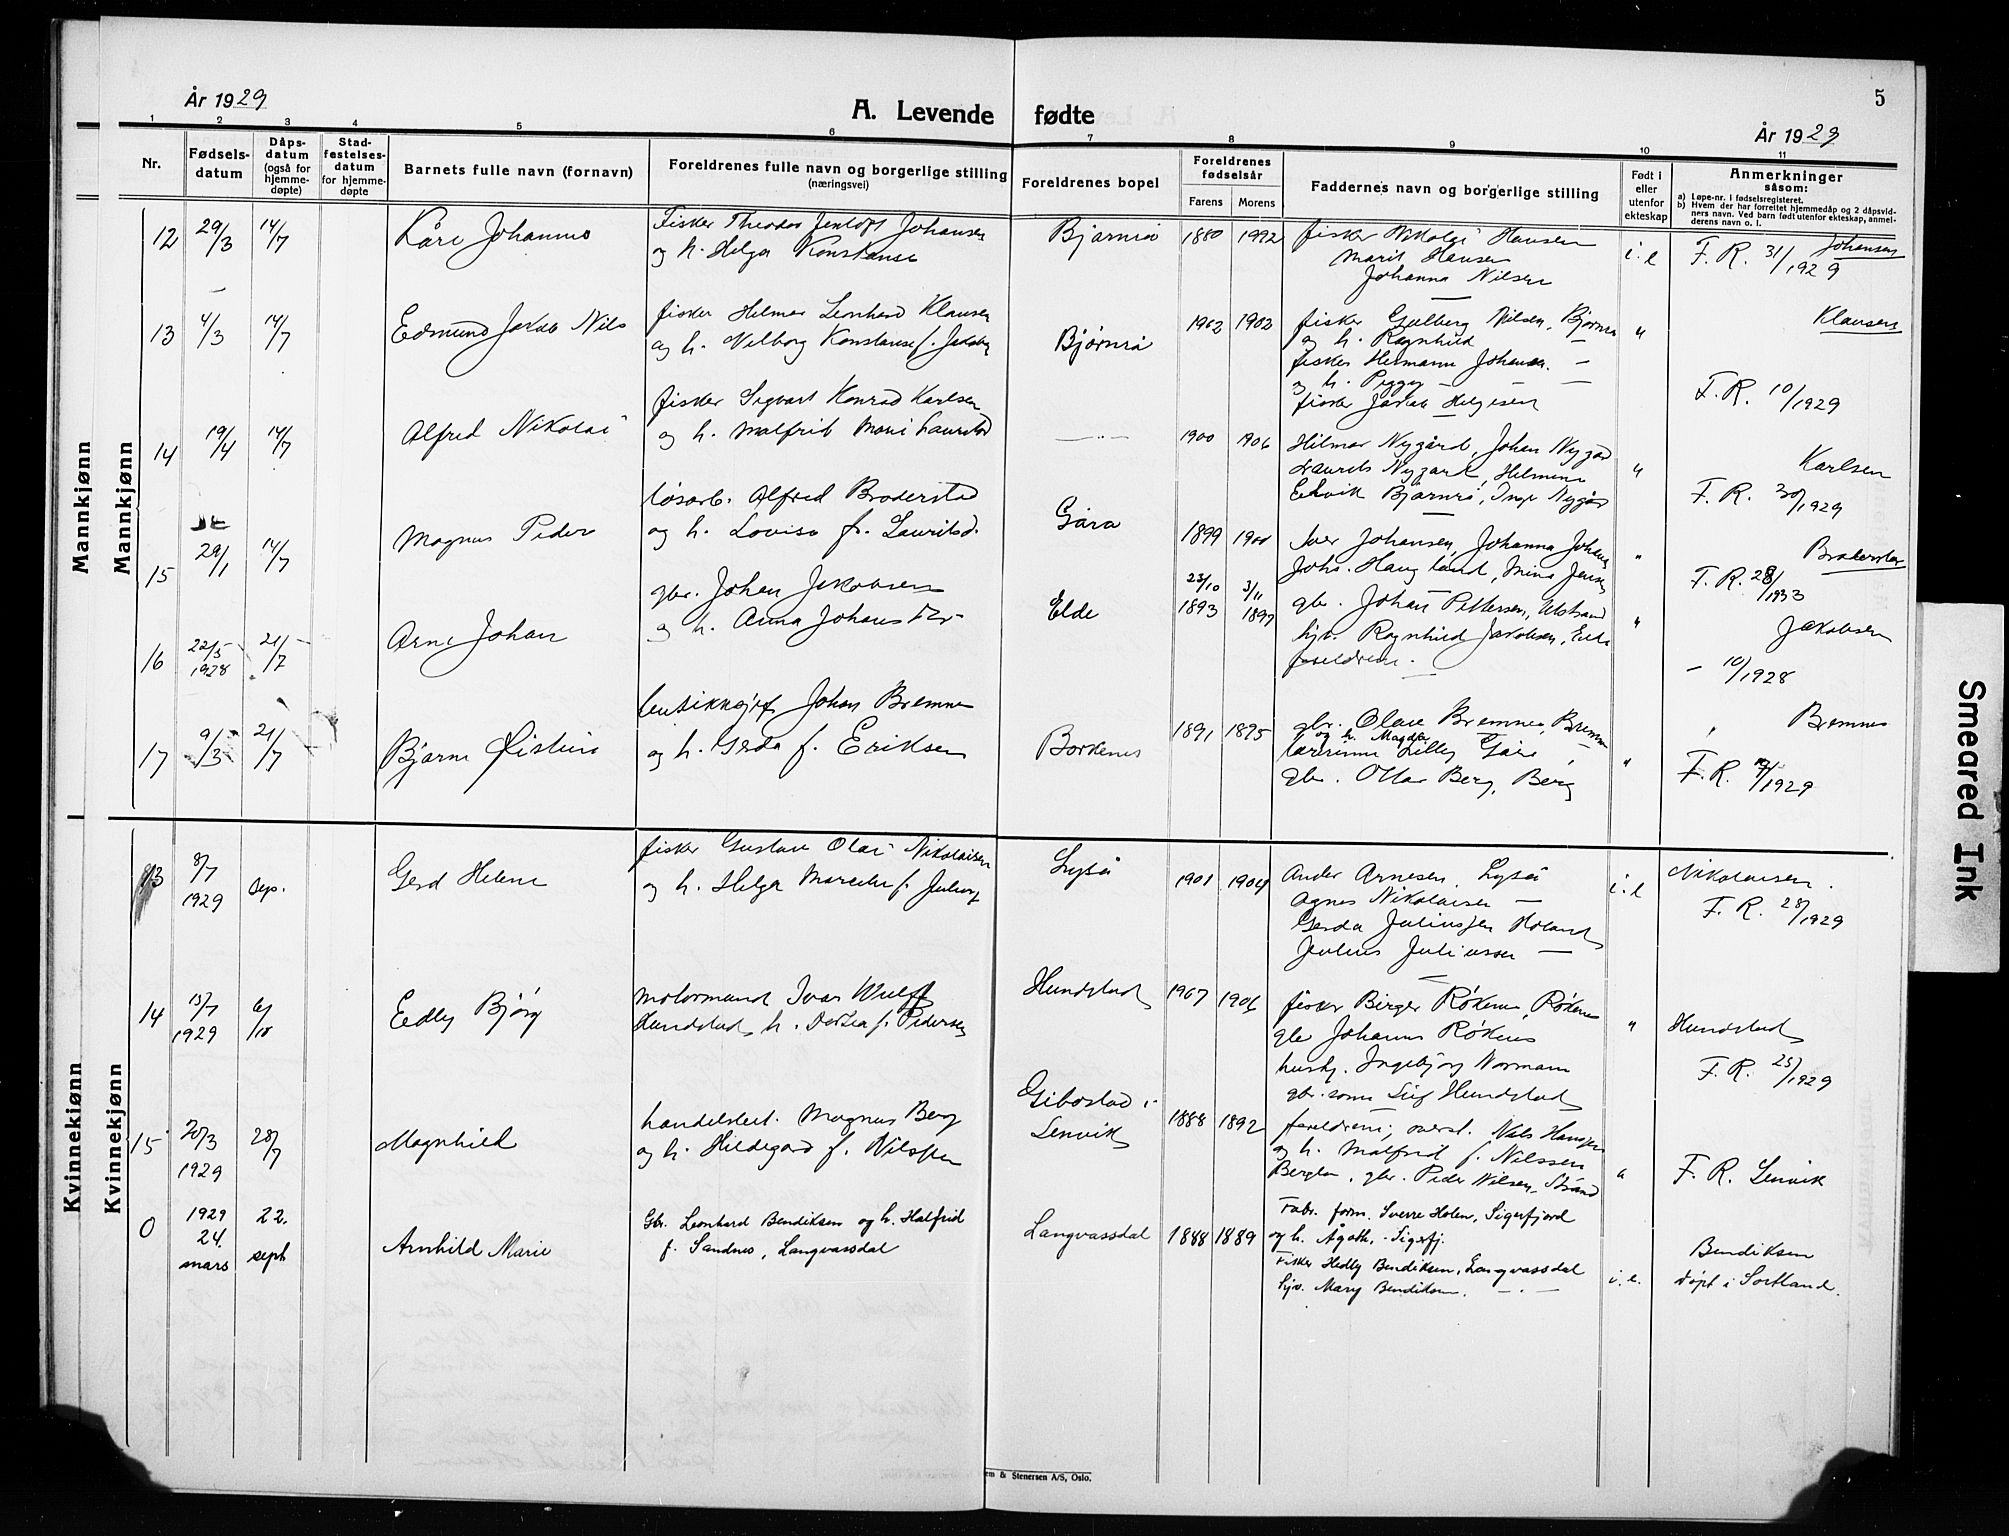 År 1929
A. Levende fødte
5
År 1929
1 2 3 4 5 6 7 8 9 10 11
Nr.
Fødsels-
datum
Dåps-
datum
(også for
hjemme-
døpte)
Stad-
festelses-
datum
for hjemme-
døpte
Barnets fulle navn (fornavn)
Foreldrenes fulle navn og borgerlige stilling
(næringsvei)
Foreldrenes bopel
Foreldrenes
fødselsår
Farens Morens
Faddernes navn og borgerlige stilling
Født i
eller
utenfor
ekteskap
Anmerkninger
såsom:
a) Løpe-nr. i fødselsregisteret.
b) Hvem der har forrettet hjemmedåp og 2 dåpsvid-
ners navn. Ved barn født utenfor ekteskap, anmel-
derens navn o. l.
Mannkjønn
Mannkjønn
12 29/3 14/7 Kåre Johannes
Fisker Theodor Jentoft Johansen
og h. Helga Konstanse
Bjørnrå 1880 1992
fisker Nikolai Hansen
Marit Hansen
Johanna Nilsen
i. e Johansen
F. R. 31/1929
13 4/3 14/7 Edmund Jakob Nils
fisker Helmer Leonhard Klausen
og h. Valborg Konstanse f. Jakobs
Bjørnrå 1902 1902
fisker Gulberg Nilsen, Bjørnrå
og h. Ragnhild —
fisker Hermann Johansen. —
og h. Peggy — —
fisker Jakob Helgesen
" Klausen
F. R. 10/1929
14 19/4 14/7 Alfred Nikolai
fisker Sigvart Konrad Karlsen
og h. Malfrid Marie Lauritsd
—„— 1900 1906
Hilmar Nygård, Johan Nygård
Laurits Nygård, Helmine
Bjørnrå, Inga Nygård
" Karlsen
F. R. 30/1929
15 29/1 14/7 Magnus Peder
løsarb. Alfred Broderstad
og h. Lovise f. Lauritsd.
Gåra 1899 1901
Iver Johansen, Johanna Johans
Johs. Haugland, Mina Jensen
" Broderstad
F. R. 28/1933
16 22/5 1928 21/7 Arne Johan
gbr. Johan Jakobsen
og h. Anna Johanna
Elde 23/10 1893 3/11 1897
gbr. Johan Pettersen, Ulstrand
hjv. Ragnhild Jakobsen, Elde
foreldrene.
" Jakobsen
— 10/1928
17 9/3 21/7 Bjarne Øistein
butikksjef Johan Bremnes
og h. Gerda f. Eriksen
Borkenes 1891 1895
gbr. Olav Bremnes, Bremnes
og h. Magda
lærerinne Lilly Gåre
gbr. Ottar Berg, Berg
" Bremnes
F. R. 19/1929
Kvinnekjønn
Kvinnekjønn
13 8/7 1929 Sep. Gerd Helene
fisker Gustav Olai Nikolaisen
og h. Helga Marelie f. Julius
Lyså 1901 1904
Ander Arnesen, Lyså
Agnes Nikolaisen —
Gerda Juliussen Roland
Julius Juliussen —
i. e Nikolaisen.
F. R. 28/1929
14 13/7 1929 6/10 Edly Bjørg
motormand Ivar Wulff
Hundstad h. Dortea f. Pedersen
Hundstad 1907 1906
fisker Birger Røkenes, Røkenes
gbr Johannes Røkenes
hush. Ingebjørg Normann
gbr. sønn Leif Hundstad
" Hundstad
F. R. 25/1929
15 20/3 1929 28/7 Magnhild
handelsbest. Magnus Berg
og h. Hildegard f. Nilssen
Gibostad i
Lenvik 1888 1892
foreldrene, overst. Nils Hansen
og h. Malfrid f. Nilssen
Berglen, gbr. Peder Nilsen, Strand
" F. R. Lenvik
0 1929 24. mars 22. sept Arnhild Marie
Gbr. Leonhard Bendiksen og h. Halfrid
f. Sandnes, Langvassdal
Langvassdal 1888 1889
Fabr. form. Sverre Holen, Sigerfjord
og h. Ågoth, - Sigerfj.
Fisker Hedly Bendiksen, Langvassdal
hjv. Mary Bendiksen. — . —
i. e. Bendiksen
døpt i Sortland.
em & Stenersen A/S, Oslo.
Smeared Ink